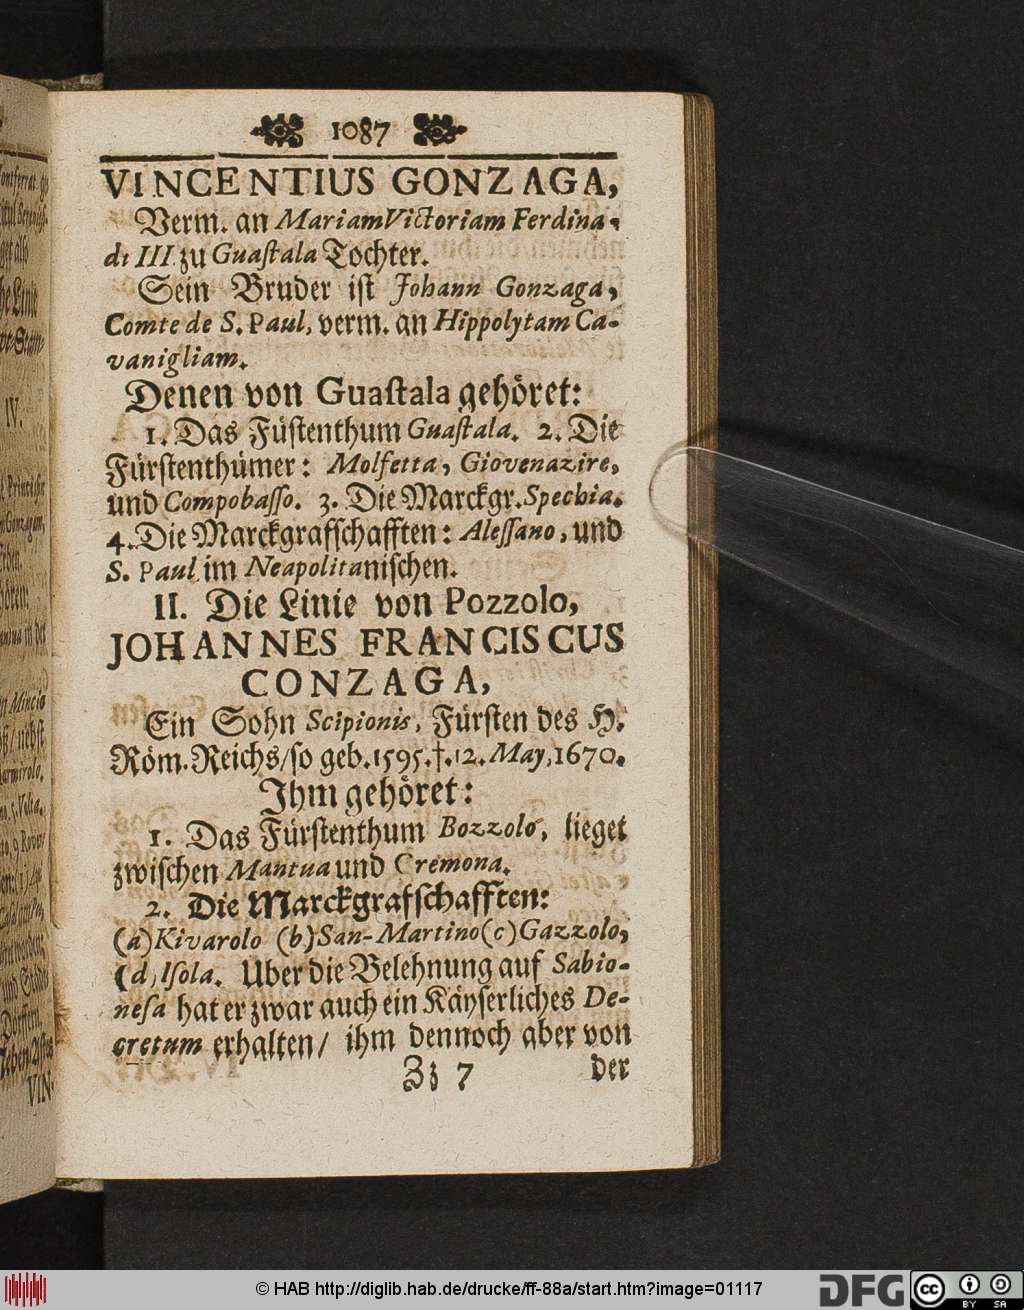 1087
VINCENTIUS GONZAGA,
Verm. an Mariam Victoriam Ferdina-
di III. zu Guaſtala Tochter.
Sein Bruder iſt Johann Gonzaga,
Comte de S. Paul, verm. an Hippolytam Ca-
vanigliam.
Denen von Guaſtala gehöret:
1. Das Füſtenthum Guaſtala. 2. Die
Fürſtenthümer: Molfetta, Giovenazire,
und Compobaſſo. 3. Die Marckgr. Specbia.
4. Die Marckgrafſchafften: Aleſſano, und
S. Paul im Neapolitaniſchen.
II. Die Linie von Pozzolo,
JOHANNES FRANCISCUS
CONZAGA,
Ein Sohn Scipionis, Fürſten des H.
Röm. Reichs/ ſo geb. 1595. †. 12. May, 1670.
Ihm gehöret:
1. Das Fürſtenthum Bozzolo, lieget
zwiſchen Mantua und Cremona.
2. Die Marckgrafſchafften:
(a) Kivarolo (b) San-Martino (c) Gazzolo,
(d) Iſola. Uber die Belehnung auf Sabio-
neſa hat er zwar auch ein Käyſerliches De-
cretum erhalten/ ihm dennoch aber von
Zz 7 der
IV.
VIN-
© HAB http://diglib.hab.de/drucke/ff-88a/start.htm?image=01117
DFG cc BY SA